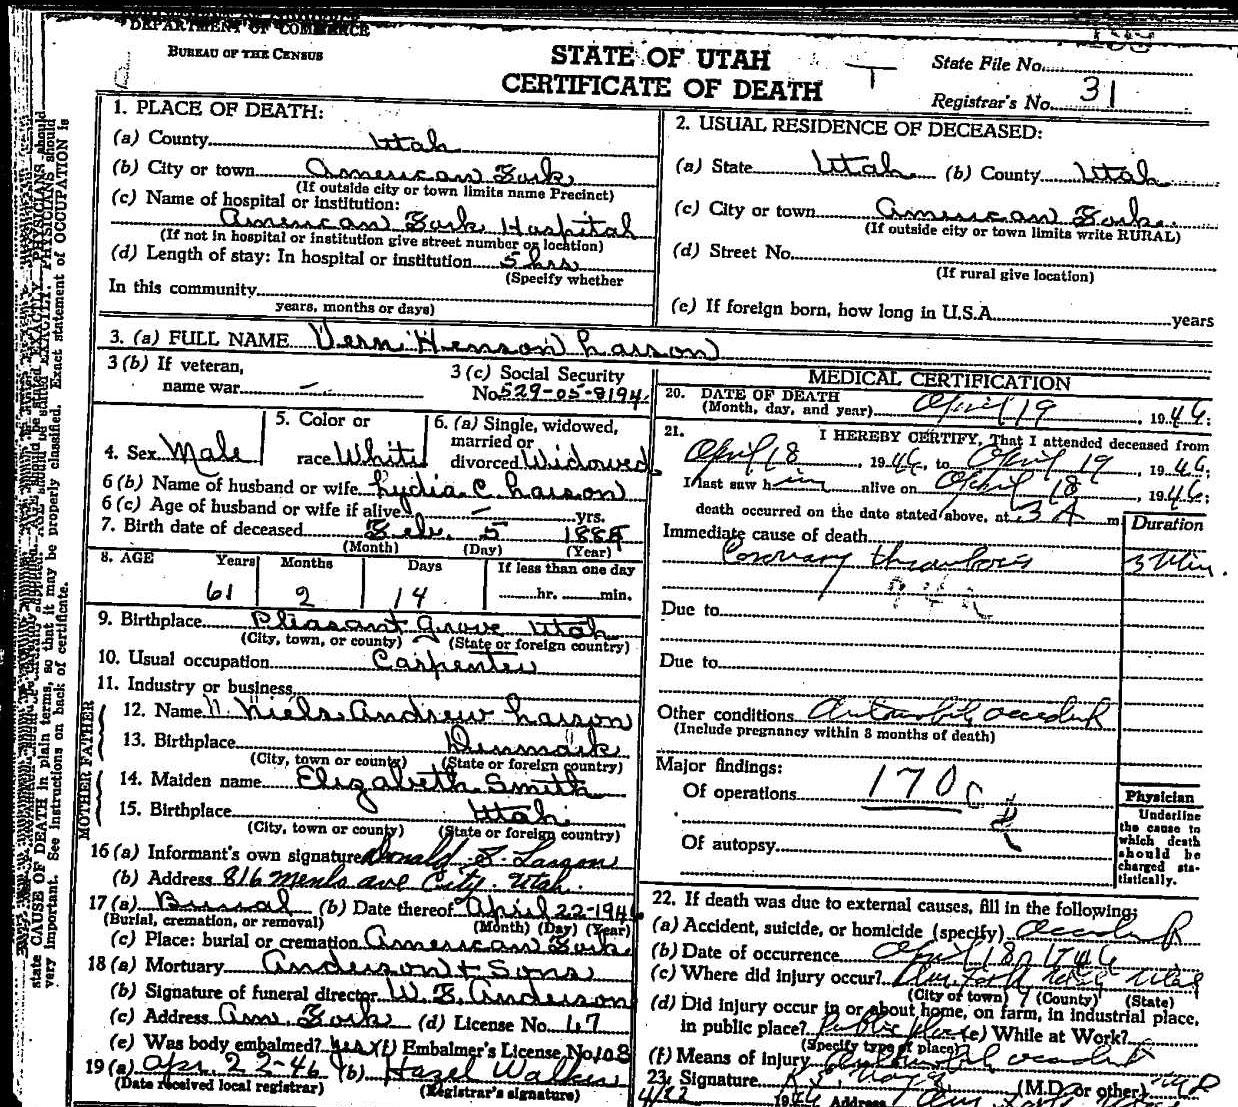 DEPARTMENT OF COMMERCE
BUREAU OF THE CENSUS
STATE OF UTAH
CERTIFICATE OF DEATH
T
State File No.
Registrar's No. 31
1. PLACE OF DEATH:
(a) County Utah
(b) City or town American Fork
(If outside city or town limits name Precinct)
(c) Name of hospital or institution:
American Fork Hospital
(If not in hospital or institution give street number or location)
(d) Length of stay: In hospital or institution 5 hrs
(Specify whether
In this community
years, months or days)
2. USUAL RESIDENCE OF DECEASED:
(a) State Utah (b) County Utah
(c) City or town American Fork
(If outside city or town limits write RURAL)
(d) Street No.
(If rural give location)
(e) If foreign born, how long in U.S.A. years
3. (a) FULL NAME Vern Henson Larson
3 (b) If veteran,
name war —
3 (c) Social Security
No. 529-05-8194
4. Sex Male
5. Color or
race White
6. (a) Single, widowed,
married or
divorced Widowed
6 (b) Name of husband or wife Lydia C. Larson
6 (c) Age of husband or wife if alive — yrs.
7. Birth date of deceased Feb. 5 1885
(Month) (Day) (Year)
8. AGE Years Months Days If less than one day
61 2 14 hr. min.
9. Birthplace Pleasant Grove Utah
(City, town, or county) (State or foreign country)
10. Usual occupation Carpenter
11. Industry or business "
12. Name Niels Andrew Larson
13. Birthplace Denmark
(City, town or county) (State or foreign country)
14. Maiden name Elizabeth Smith
15. Birthplace Utah
(City, town or county) (State or foreign country)
FATHER
MOTHER
16 (a) Informant's own signature Donald S. Larson
(b) Address 816 ave City. Utah.
17 (a) Burial (b) Date thereof April 22-1946
(Burial, cremation, or removal) (Month) (Day) (Year)
(c) Place: burial or cremation American Fork
18 (a) Mortuary Anderson & Sons
(b) Signature of funeral director W. E. Anderson
(c) Address Am. Fork (d) License No. 67
(e) Was body embalmed? yes (f) Embalmer's License No. 108
19 (a) Apr. 22-46 (b) Hazel Walker
(Date received local registrar) (Registrar's signature)
MEDICAL CERTIFICATION
20. DATE OF DEATH
(Month, day, and year) April 19, 1946:
21. I HEREBY CERTIFY, That I attended deceased from
April 18, 1946, to April 19, 1946;
I last saw him alive on April 18, 1946;
death occurred on the date stated above, at 3 A m.
Duration
Immediate cause of death
Coronary thrombosis 3 Min.
Due to
Due to
Other conditions Automobile accident
(Include pregnancy within 3 months of death)
Major findings:
Of operations 170 C
Of autopsy
Physician
Underline
the cause to
which death
should be
charged sta-
tistically.
22. If death was due to external causes, fill in the following:
(a) Accident, suicide, or homicide (specify) accident
(b) Date of occurrence April 18, 1946
(c) Where did injury occur? Am. Fork Utah Utah
(City or town) (County) (State)
(d) Did injury occur in or about home, on farm, in industrial place,
in public place? Public place (e) While at Work?
(Specify type of place)
(f) Means of injury Automobile accident
23. Signature (M.D. or other) MD
4/22 1946 Address Am. Fork
state CAUSE OF DEATH in plain terms, so that it may be properly classified. Exact statement of OCCUPATION is
very important. See instructions on back of certificate.